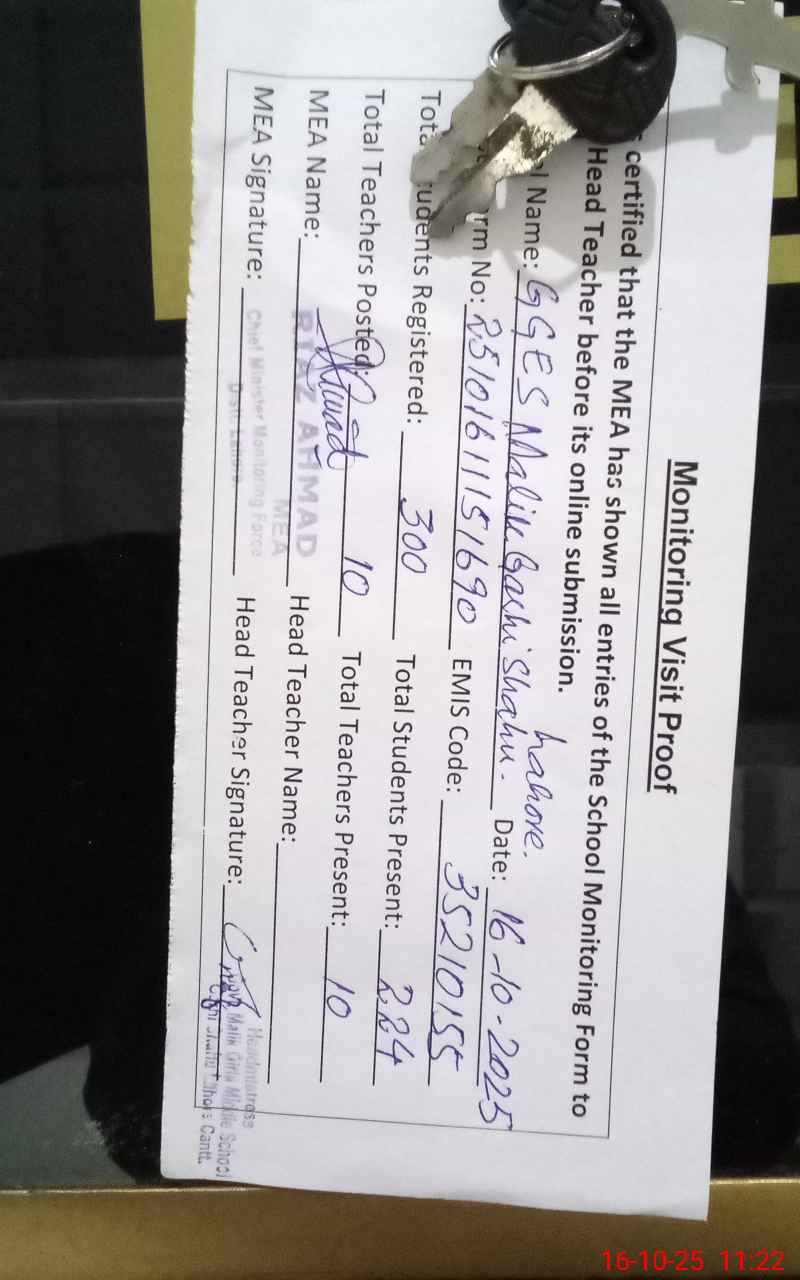 Monitoring Visit Proof
certified that the MEA has shown all entries of the School Monitoring Form to
Head Teacher before its online submission.
Name: GGES Malik Garhi Shahu. Lahore. Date: 16-10-2025
rm No: 25101611151690 EMIS Code: 35210155
Tota tudents Registered: 300 Total Students Present: 224
Total Teachers Posted: 10 Total Teachers Present: 10
MEA Name: RIAZ AHMAD Head Teacher Name:
MEA
MEA Signature: Chief Minister Monitoring Force Head Teacher Signature:
Distt: Lahore
Headmistress
Malik Girls Middle School
Shahu Lahore Cantt.
16-10-25 11:22